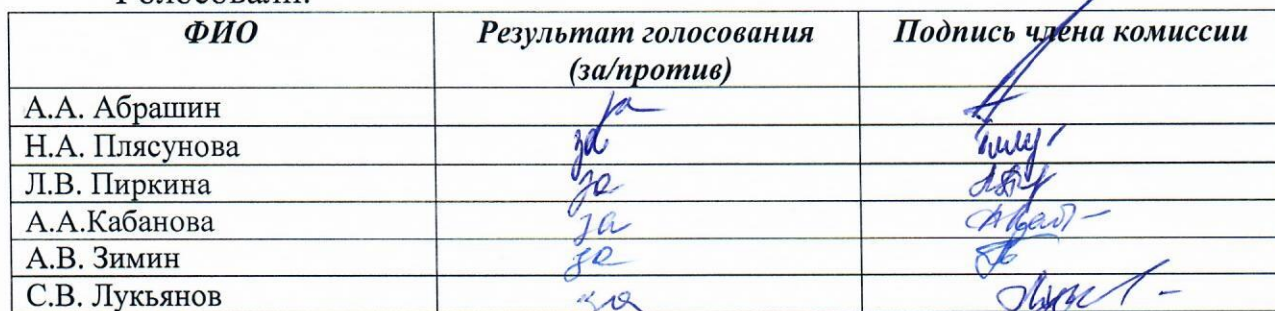 Голосовали:
ФИО Результат голосования (за/против) Подпись члена комиссии
А.А. Абрашин за
Н.А. Плясунова за
Л.В. Пиркина за
А.А.Кабанова за
А.В. Зимин за
С.В. Лукьянов за